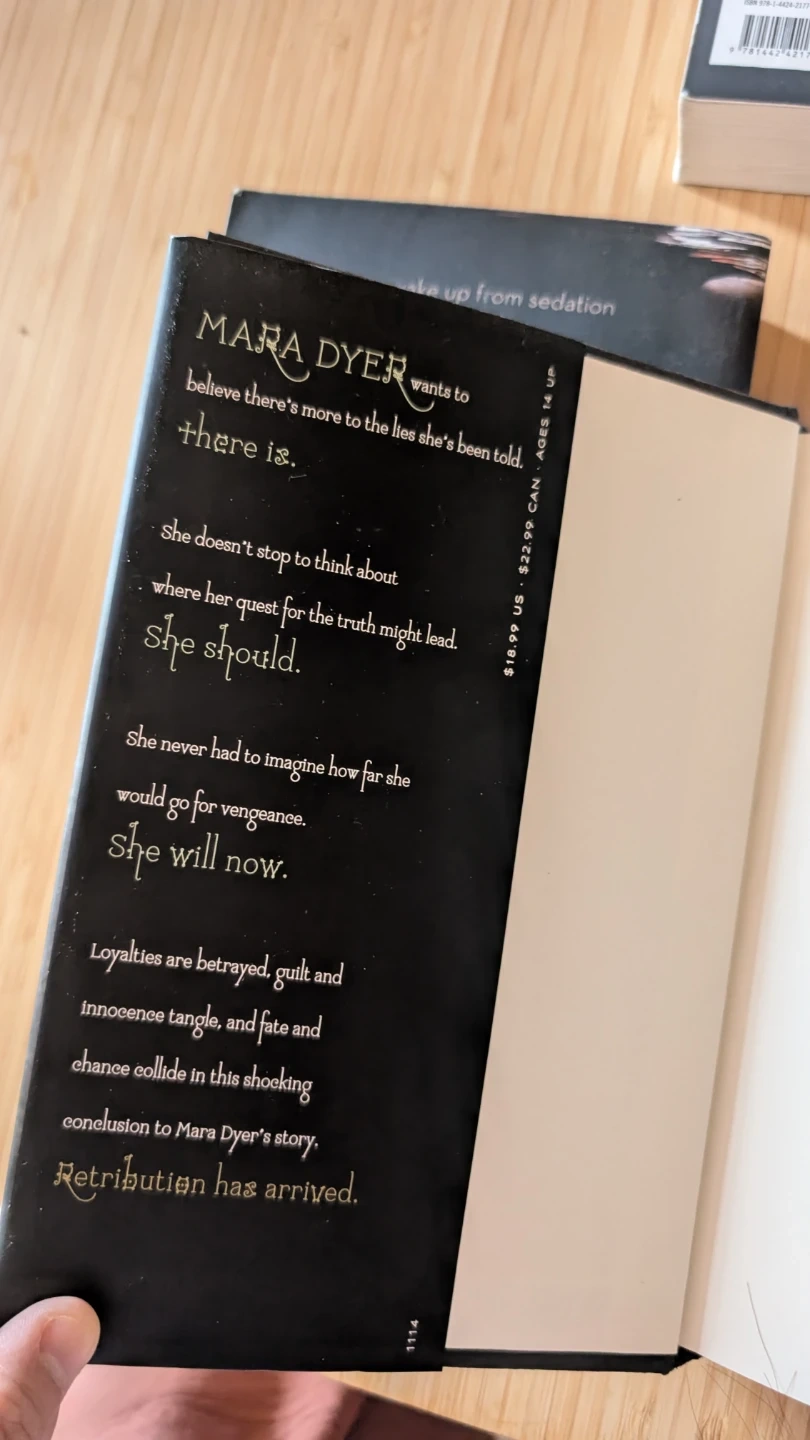 MARA DYER wants to
believe there's more to the lies she's been told.
there is.
She doesn't stop to think about
where her quest for the truth might lead.
She should.
She never had to imagine how far she
would go for vengeance.
She will now.
Loyalties are betrayed, guilt and
innocence tangle, and fate and
chance collide in this shocking
conclusion to Mara Dyer's story.
Retribution has arrived.
$18.99 US · $22.99 CAN · AGES 14 UP
1114
up from sedation